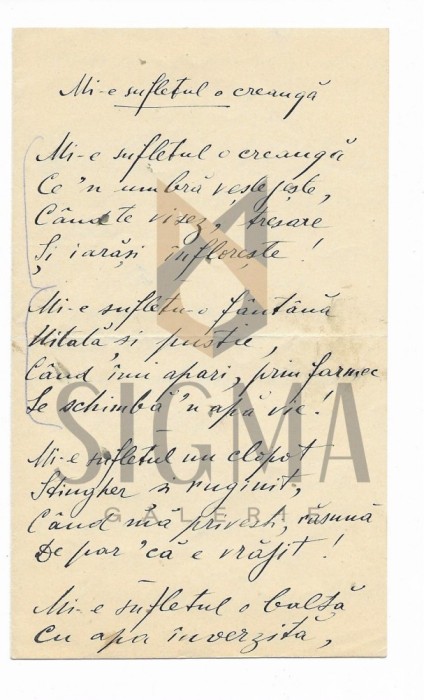 Mi-e sufletul o creangă
Mi-e sufletul o creangă
Ce 'n umbră veștejește,
Când te visez, tresare
Și iarăși înflorește!
Mi-e sufletu-o fântână
Uitată, și pustie,
Când îmi apari, prin farmec
Se schimbă 'n apă vie!
SIGMA
GALERIE
Mi-e sufletul un clopot
Stingher și ruginit,
Când mă privești, răsună
De par 'că e vrăjit!
Mi-e sufletul o baltă
Cu apa înverzită,